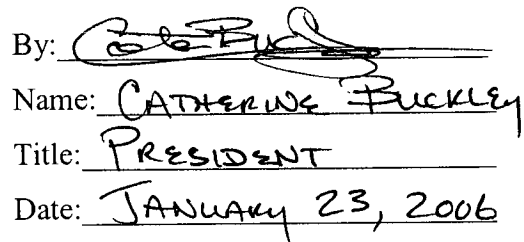 By:
Name: CATHERINE BUCKLEY
Title: PRESIDENT
Date: JANUARY 23, 2006